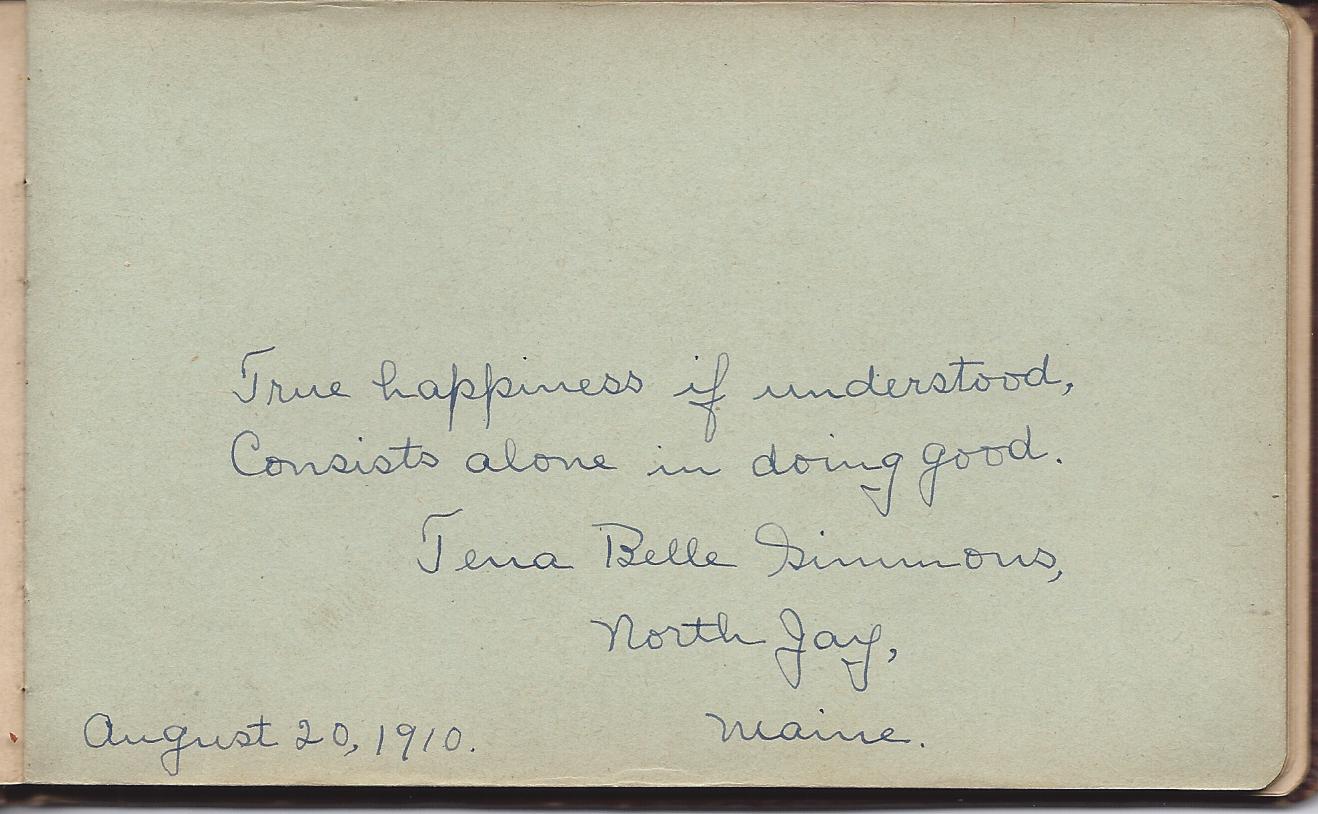 True happiness if understood,
Consists alone in doing good.
Tena Belle Simmons,
North Jay,
Maine.
August 20, 1910.